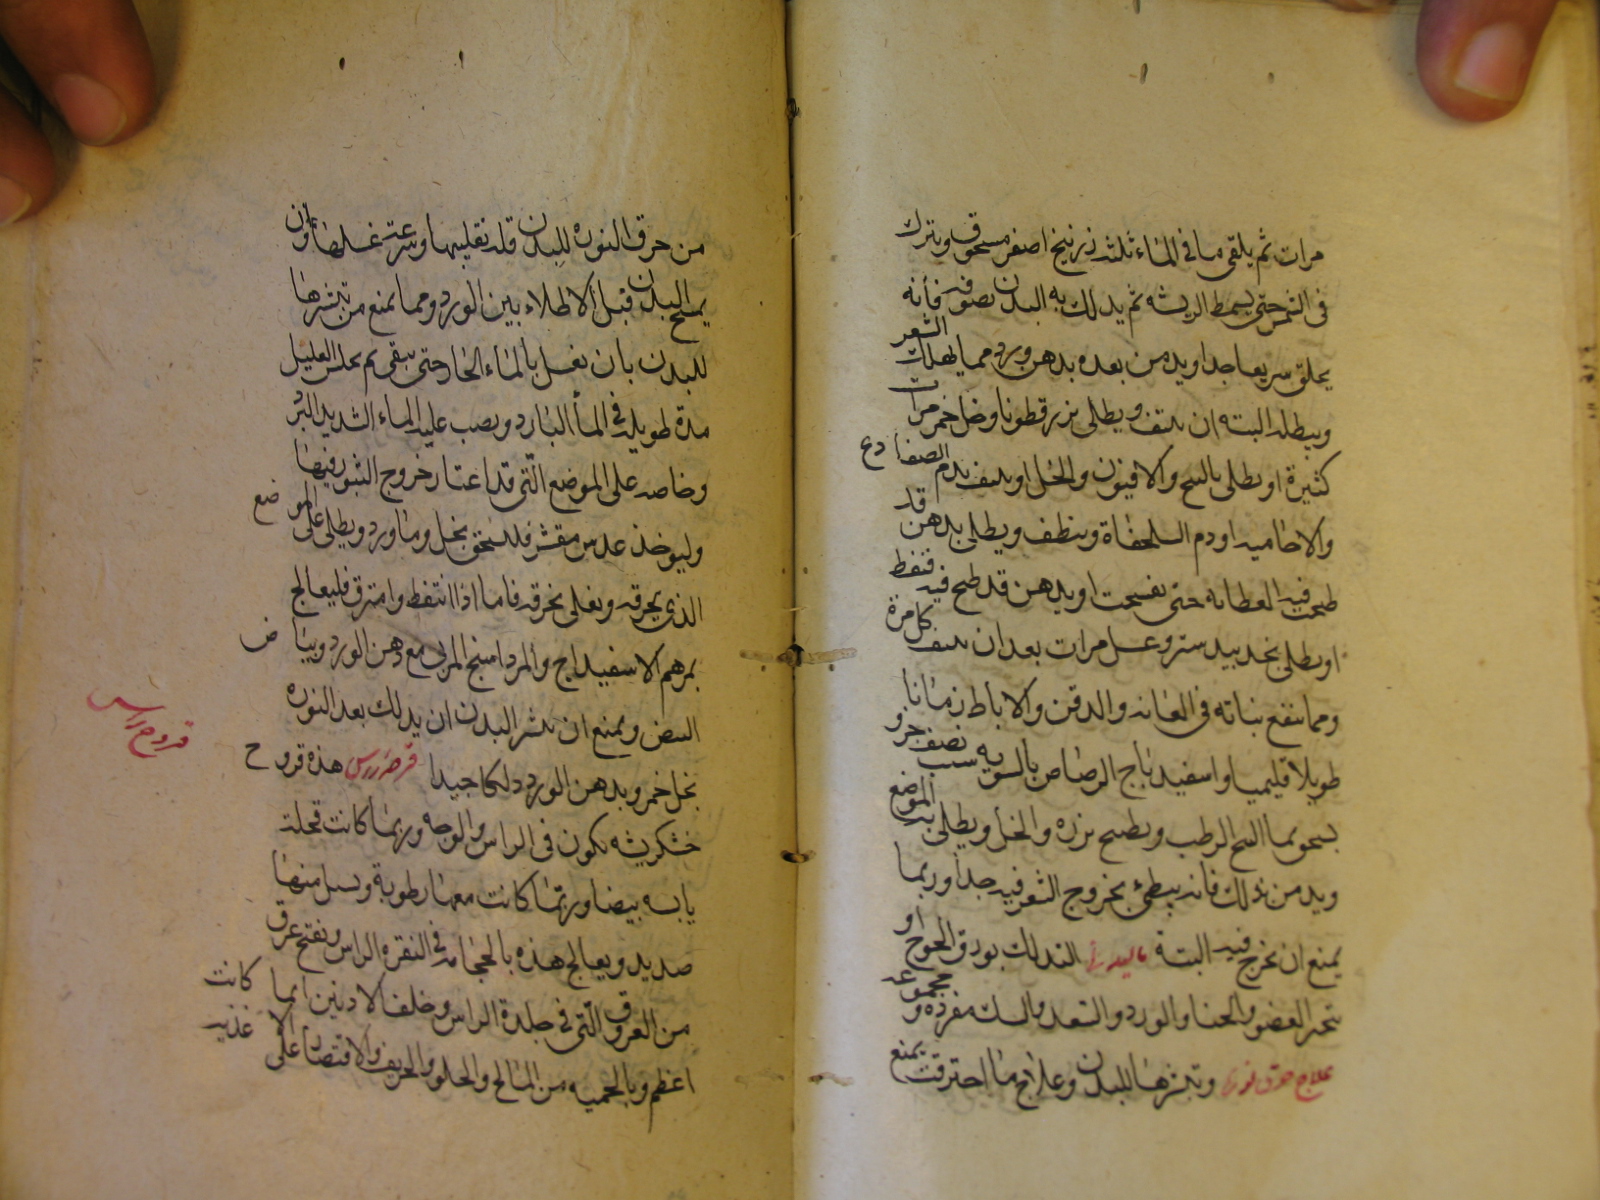 مرات ثم يلقى ما فى الماء ثلثه زرنيخ اصفر مسحوق ويترك
فى الشمس حتى يسمط الريشه ثم يدلك به البدن بصوفه فانه
يحلق سريعا جدا ويدهن بعده بدهن ورد مما يهلك الشعر
ويبطله البته ان ينتف ويطلى بزر قطونا وخل خمر مرات
كثيرة او يطلى بالبنج والافيون والخل او ينتف بدم الضفادع
والاجامية او دم السلحفاة وينظف ويطلى بدهن قد
طبخت فيه العظايه حتى تفسخت او بدهن قد طبخ فيه قنفط
او يطلى بجندبيدستر وعسل مرات بعد ان ينتف كل مرة
ومما ينفع بناته فى العانه والدقن والاباط زمانا
طويلا قليميا واسفيداج الرصاص بالسويه شب نصف جزو
يسحق بماء البنج الرطب ويطبخ بزره والخل ويطلى به الموضع
ويدمن ذلك فانه يبطئ بخروج الشعر فيه جدا وربما
يمنع ان يخرج فيه البتة التدلك بورق الخوخ او
بحر العضو والحنا والورد والسعد والسك مفرده ومجموعه
علاج حرق النورة وتبثرها للبدن وعلاج ما احترقت يمنع
من حرق النوره للبدن قله تقليبها وسرعة غسلها وان
يمسح البدن قبل الاطلاء بين الورد ومما يمنع من تبثرها
للبدن بان يغسل بالماء الحار حتى ينقى ثم يجلس العليل
مدة طويله فى الماء البارد ويصب عليه الماء الشديد البرد
وخاصه على الموضع التى قد اعتاد خروج البثور فيها
وليوخذ عدس مقشر فليسحق بخل وماورد ويطلى على الموضع
الذى يحرقه ويغلى بخرقه فاما اذا انتفط واحترق فليعالج
بمرهم الاسفيداج والمرداسنج المربى مع دهن الورد وبياض
البيض ويمنع ان تبثر البدن ان يدلك بعد النوره
بخل خمر وبدهن الورد دلكا جيدا قرحة راس هذه قروح
خشكريشه تكون فى الراس والوجه وربما كانت قحلة
يابسه بيضا وربما كانت معها رطوبة ويسيل منها
صديد ويعالج هذه بالحجامه فى النقره الراس ويفتح عرق
من العروق التى فى جلدة الراس وخلف الاذنين ايما كانت
اعظم وبالحميه من المالح والحلو والحريف والاقتصار على الاغذيه
قروح راس